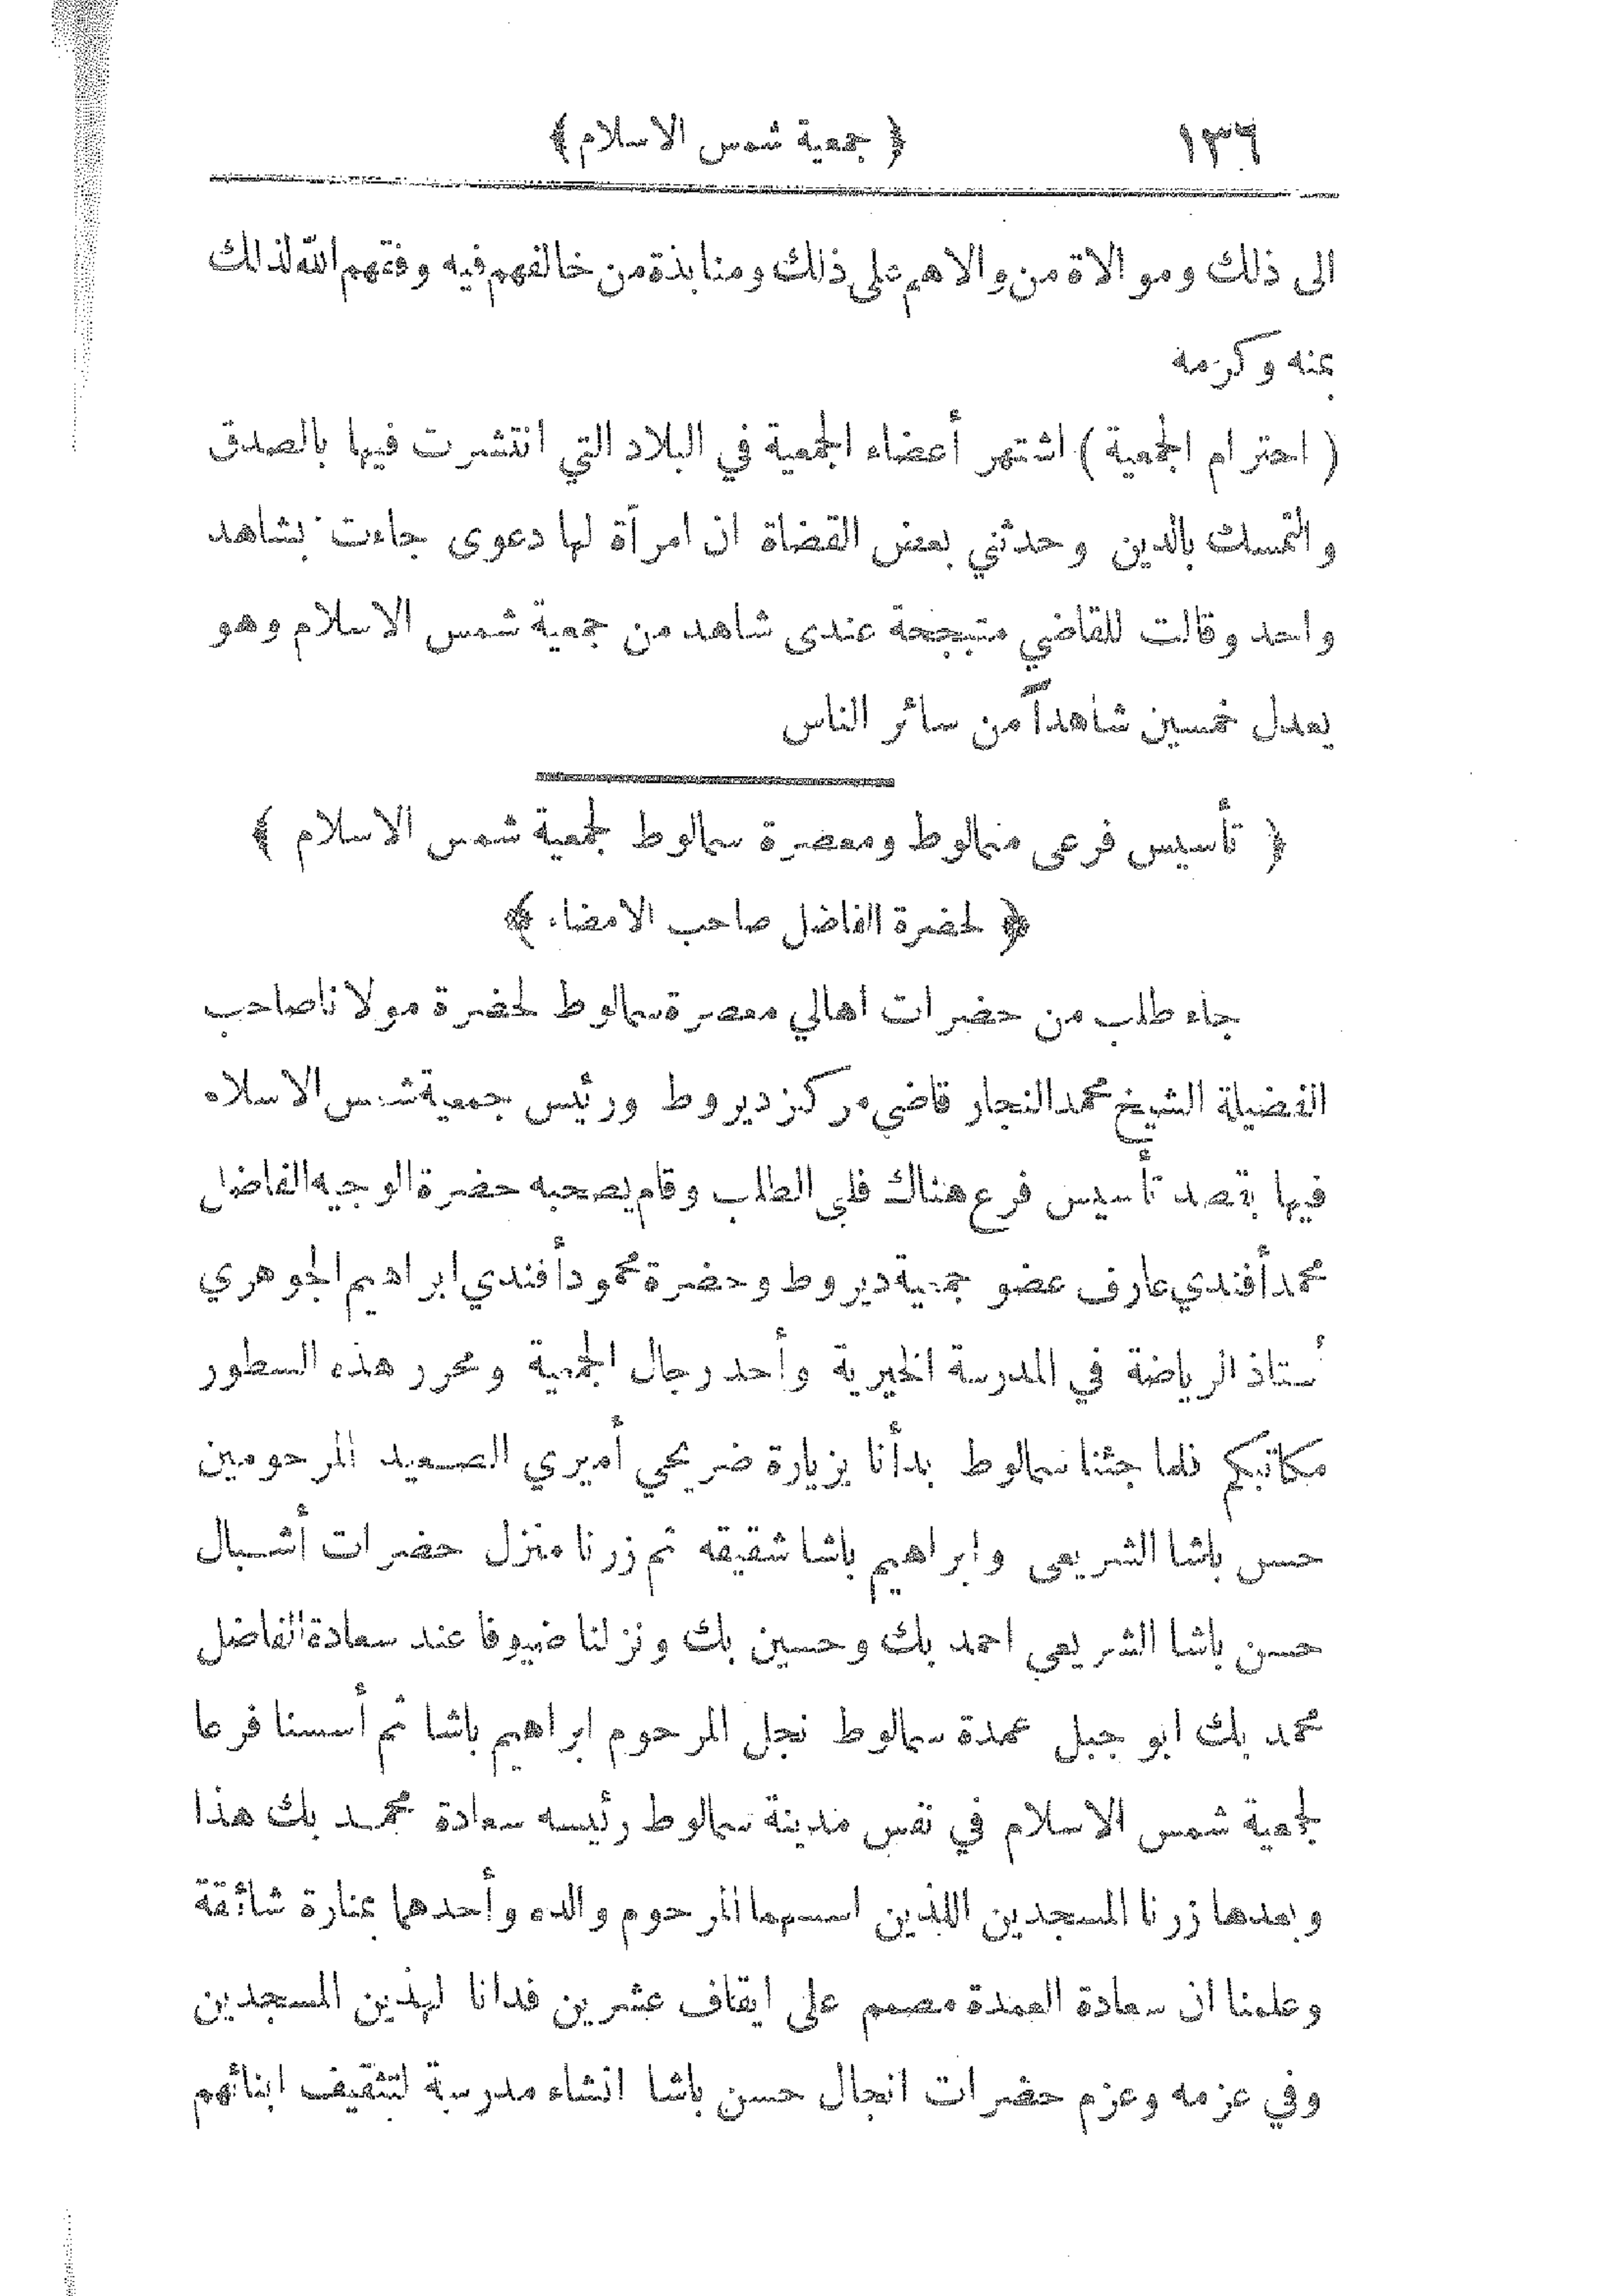 ١٣٦ ﴿ جمعية شمس الاسلام ﴾
الى ذلك وموالاة من والاهم على ذلك ومنابذة من خالفهم فيه وفقهم الله لذلك
بمنه وكرمه
( احترام الجمعية ) اشتهر أعضاء الجمعية في البلاد التي انتشرت فيها بالصدق
والتمسك بالدين وحدثني بعض القضاة ان امرأة لها دعوى جاءت بشاهد
واحد وقالت للقاضي متبجحة عندى شاهد من جمعية شمس الاسلام وهو
يعدل خمسين شاهداً من سائر الناس
﴿ تأسيس فرعى سمالوط ومعصرة سمالوط لجمعية شمس الاسلام ﴾
﴿ لحضرة الفاضل صاحب الامضاء ﴾
جاء طلب من حضرات اهالي معصرة سمالوط لحضرة مولانا صاحب
الفضيلة الشيخ محمد النجار قاضي مركز ديروط ورئيس جمعية شمس الاسلام
فيها بقصد تأسيس فرع هناك فلبى الطلب وقام يصحبه حضرة الوجيه الفاضل
محمد أفندي عارف عضو جمعية ديروط وحضرة محمود أفندي ابراهيم الجوهري
أستاذ الرياضة في المدرسة الخيرية وأحد رجال الجمعية ومحرر هذه السطور
مكاتبكم فلما جئنا سمالوط بدأنا بزيارة ضريحي أميري الصعيد المرحومين
حسن باشا الشريعى وابراهيم باشا شقيقه ثم زرنا منزل حضرات أشبال
حسن باشا الشريعي احمد بك وحسين بك ونزلنا ضيوفا عند سعادة الفاضل
محمد بك ابو جبل عمدة سمالوط نجل المرحوم ابراهيم باشا ثم أسسنا فرعا
لجمعية شمس الاسلام في نفس مدينة سمالوط رئيسه سعادة محمد بك هذا
وبعدها زرنا المسجدين اللذين اسسهما المرحوم والده وأحدهما بمنارة شائقة
وعلمنا ان سعادة العمدة مصمم على ايقاف عشرين فدانا لهذين المسجدين
وفي عزمه وعزم حضرات انجال حسن باشا انشاء مدرسة لتثقيف ابنائهم